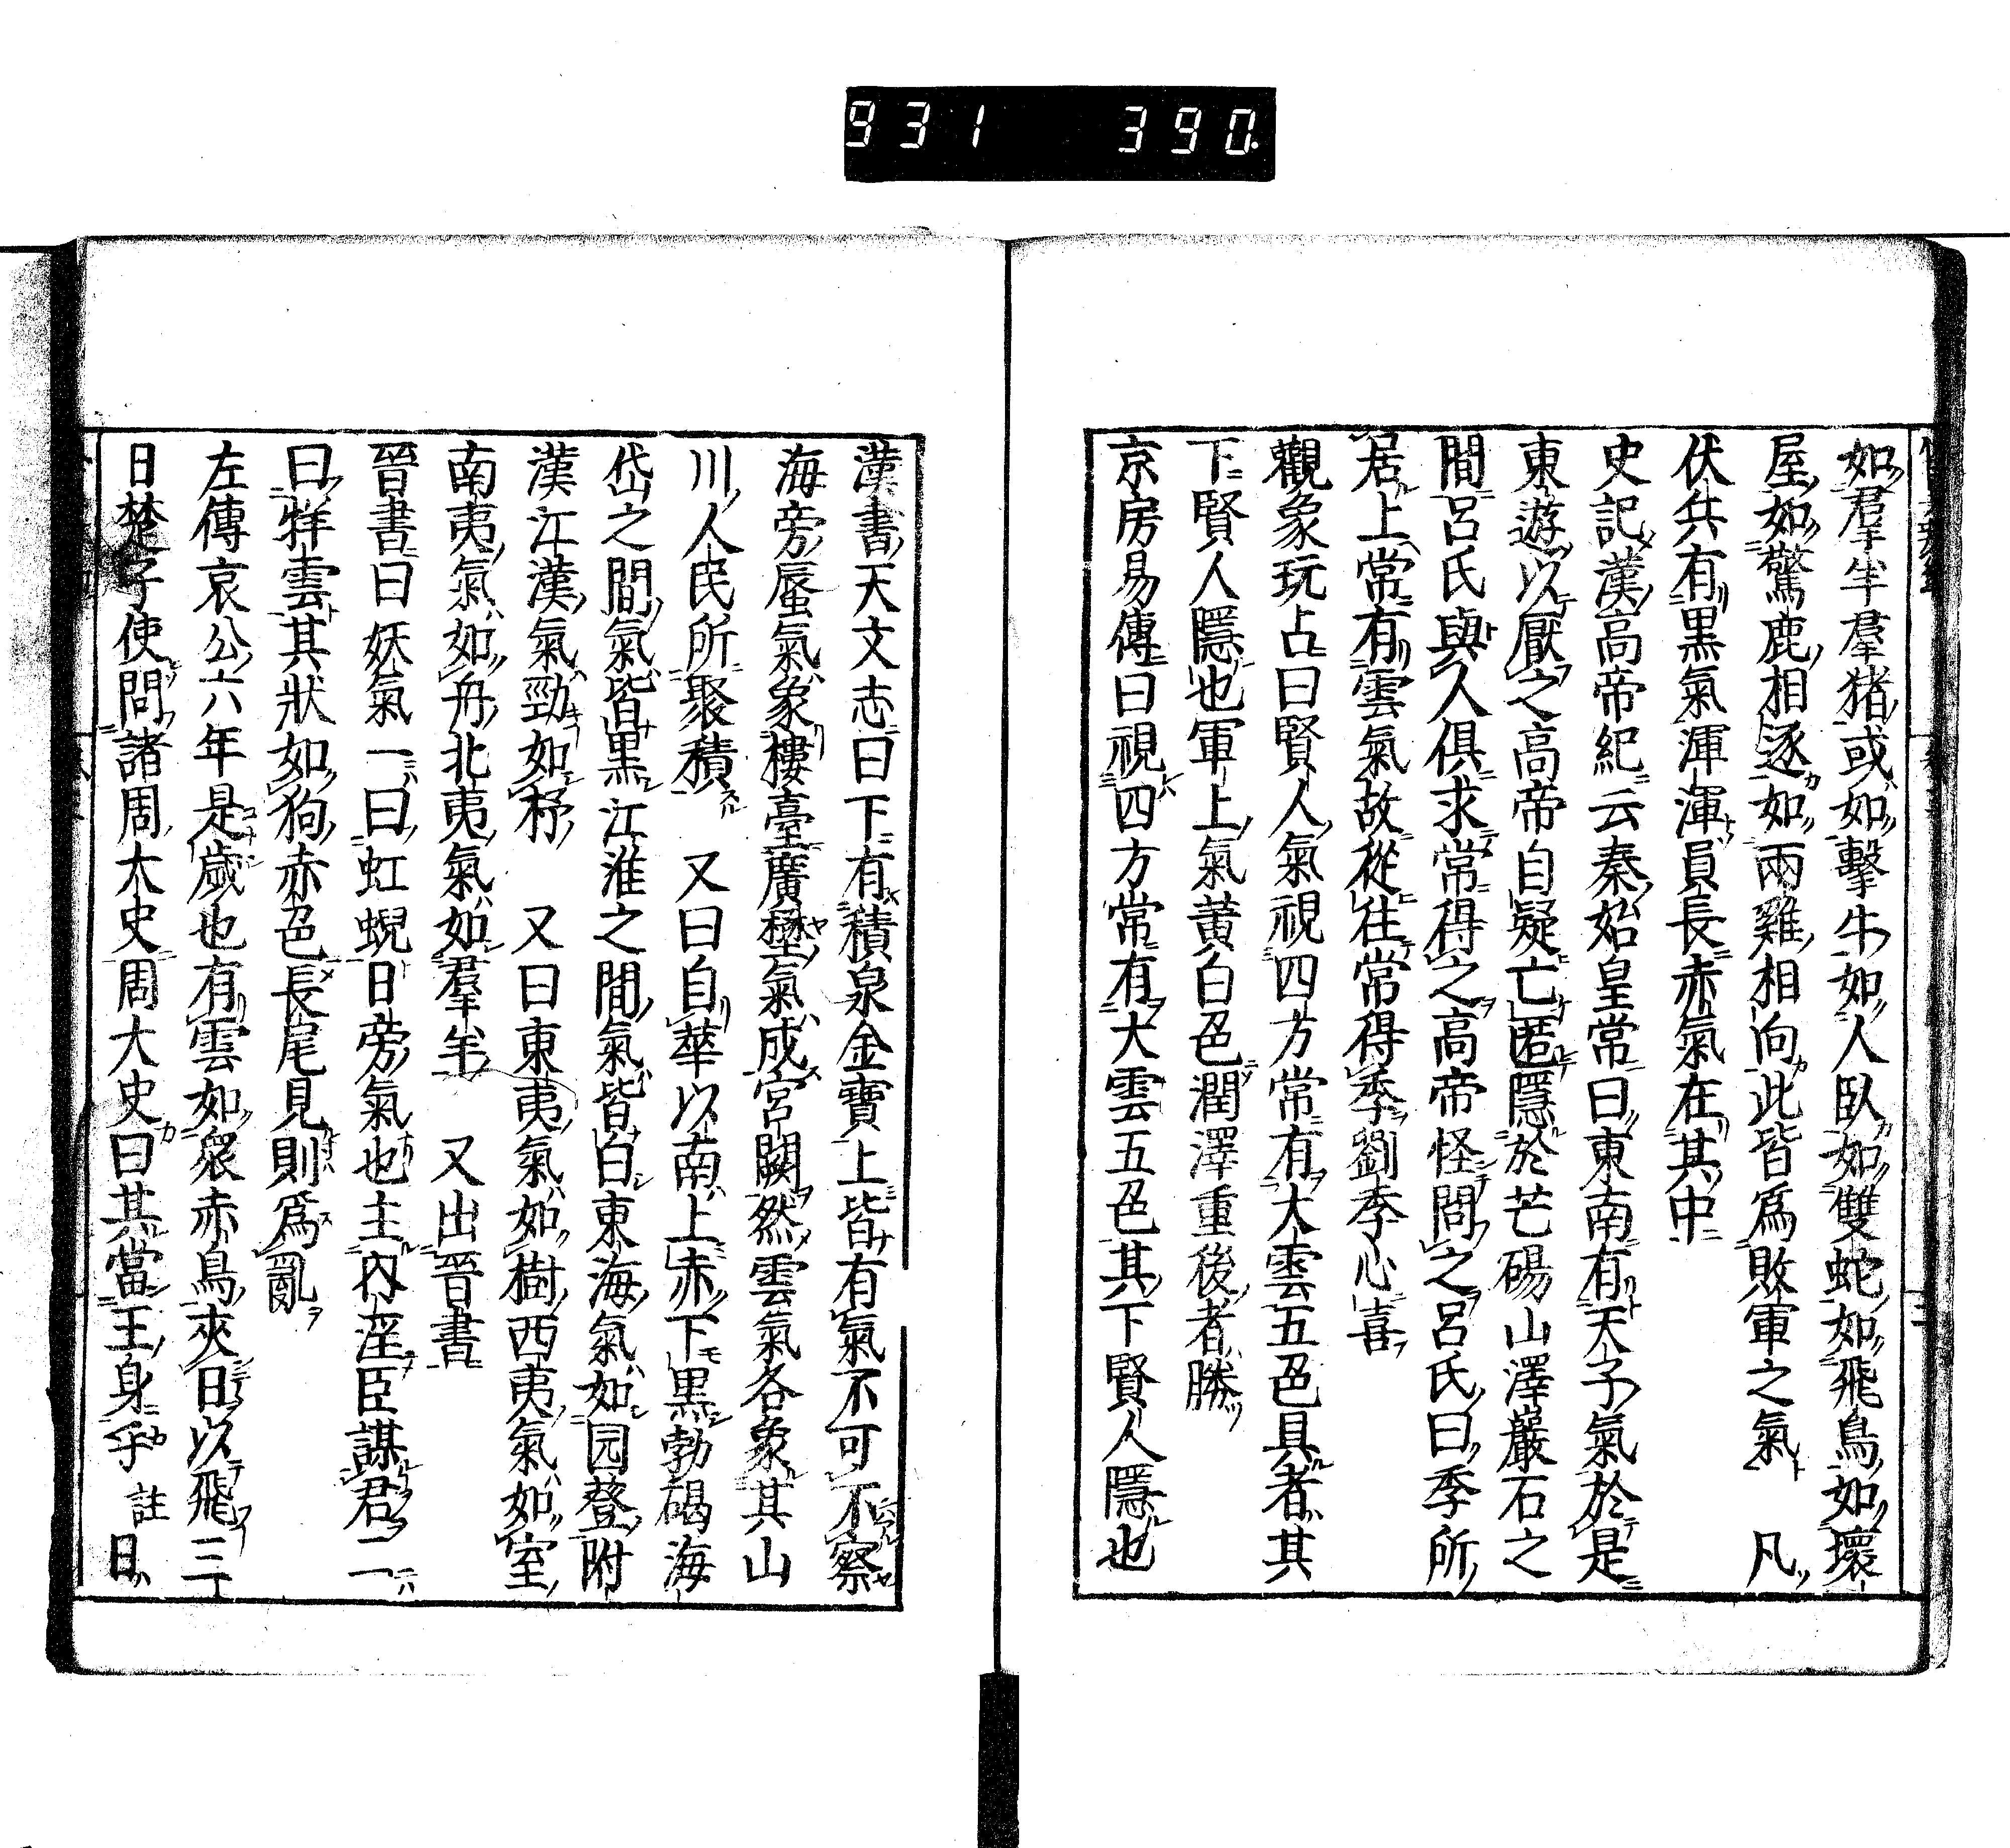 931 390
如羣羊羣猪或如擊牛如人臥如雙蛇如飛鳥如壞
屋如驚鹿相逐如兩雞相向此皆爲敗軍之氣 凡
伏兵有黒氣渾渾員長赤氣在其中
史記漢高帝紀云秦始皇常曰東南有天子氣於是
東遊以厭之高帝自疑亡匿隱於芒碭山澤巖石之
間呂氏與人俱求常得之高帝怪問之呂氏曰季所
居上常有雲氣故從往常得季劉季心喜
觀象玩占曰賢人氣視四方常有大雲五色具者其
下賢人隱也軍上氣黄白色潤澤重後者勝
京房易傳曰視四方常有大雲五色其下賢人隱也
漢書天文志曰下有積泉金寶上皆有氣不可不察
海旁蜃氣象樓臺廣壄氣成宮闕然雲氣各象其山
川人民所聚積 又曰自華以南上赤下黒勃碣海
岱之間氣皆黒江淮之間氣皆白東海氣如园簦附
漢江漢氣勁如杼 又曰東夷氣如樹西夷氣如室
南夷氣如舟北夷氣如羣羊 又出晉書
晉書曰妖氣一曰虹蜺日旁氣也主内淫臣謀君二
曰牂雲其狀如狗赤色長尾見則爲亂
左傳哀公六年是歲也有雲如衆赤鳥夾日以飛三
日楚子使問諸周大史周大史曰其當王身乎 註曰